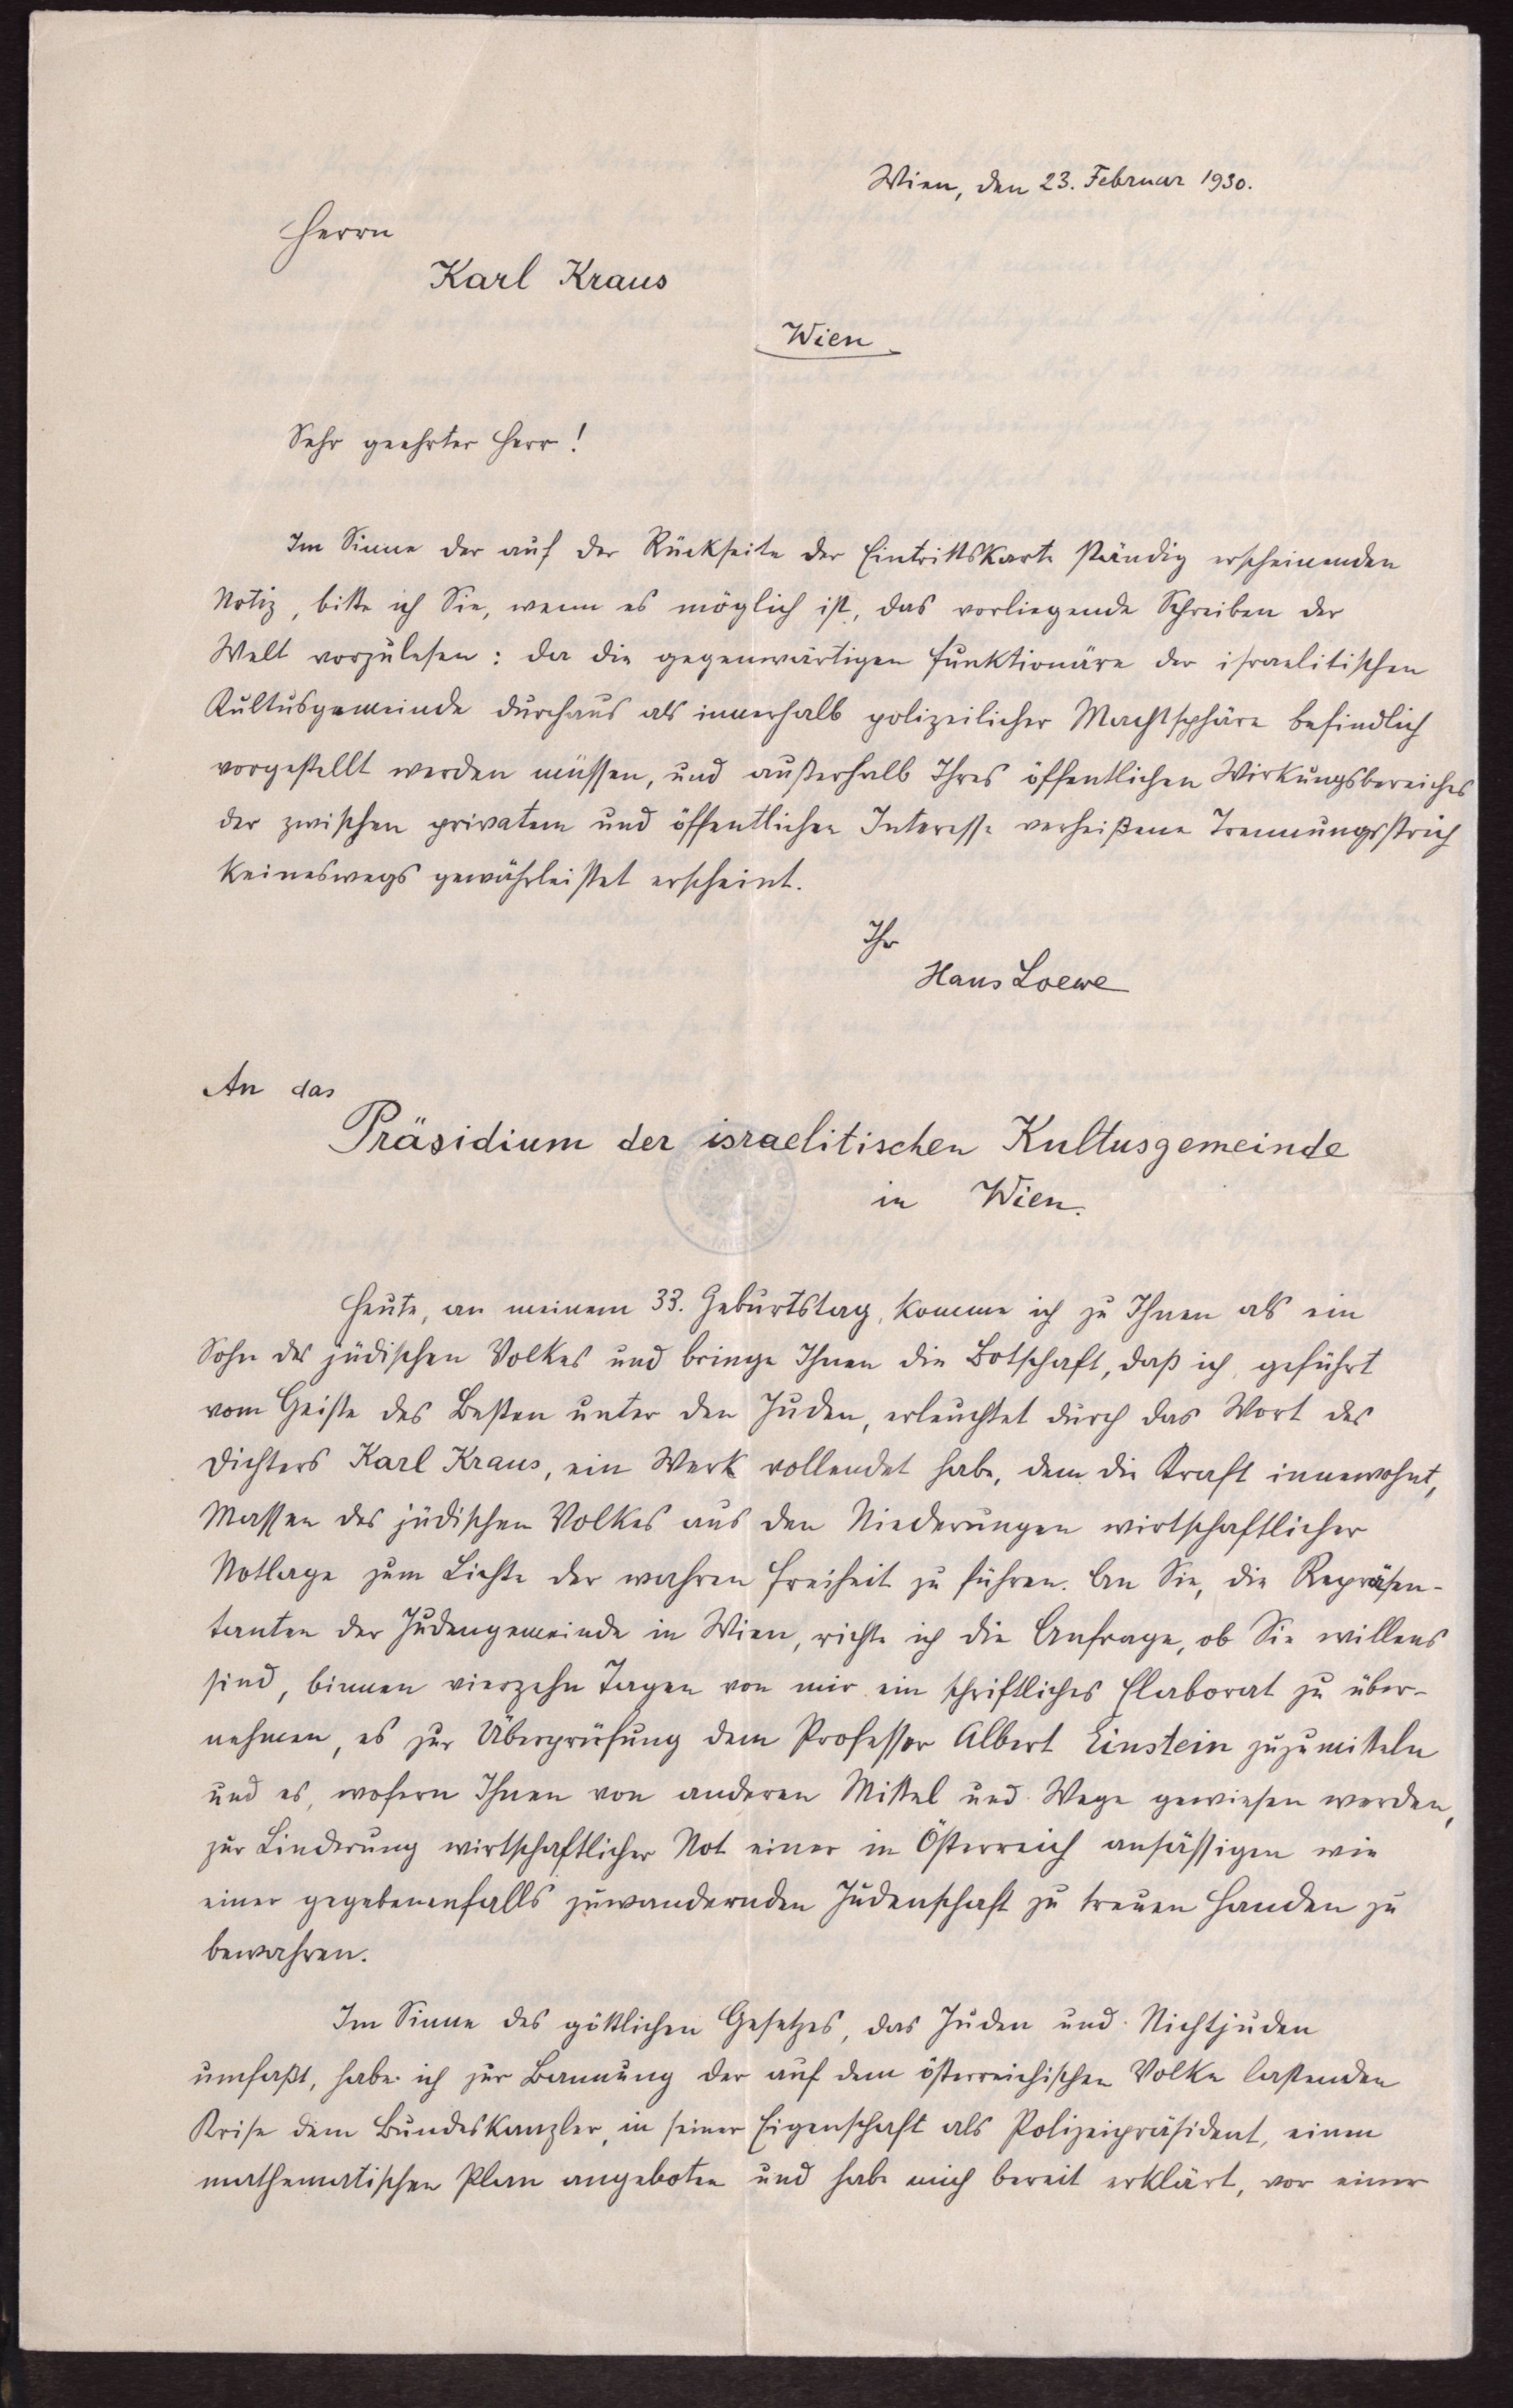 Wien, den 23. Februar 1930.
Herrn
Karl Kraus
Wien
Sehr geehrter Herr!
Im Sinne der auf der Rückseite der Eintrittskarte ständig erscheinenden
Notiz, bitte ich Sie, wenn es möglich ist, das vorliegende Schreiben der
Welt vorzulesen: da die gegenwärtigen Funktionäre der israelitischen
Kultusgemeinde durchaus als innerhalb polizeilicher Machtsphäre befindlich
vorgestellt werden müssen, und außerhalb Ihres öffentlichen Wirkungsbereiches
der zwischen privatem und öffentlichen Interesse verheißene Trennungsstrich
keineswegs gewährleistet erscheint.
Ihr
Hans Loewe
An das
Präsidium der israelitischen Kultusgemeinde
in Wien.
Heute, an meinem 33. Geburtstag, komme ich zu Ihnen als ein
Sohn des jüdischen Volkes und bringe Ihnen die Botschaft, daß ich, geführt
vom Geiste des Besten unter den Juden, erleuchtet durch das Wort des
Dichters Karl Kraus, ein Werk vollendet habe, dem die Kraft innewohnt,
Massen des jüdischen Volkes aus den Niederungen wirtschaftlicher
Notlage zum Lichte der wahren Freiheit zu führen. An Sie, die Repräsen-
tanten der Judengemeinde in Wien, richte ich die Anfrage, ob Sie willens
sind, binnen vierzehn Tagen von mir ein schriftliches Elaborat zu über-
nehmen, es zur Überprüfung dem Professor Albert Einstein zuzumitteln
und es, wofern Ihnen von anderen Mittel und Wege gewiesen werden,
zur Linderung wirtschaftlicher Not einer in Österreich ansässigen wie
einer gegebenenfalls zuwandernden Judenschaft zu treuen Handen zu
bewahren.
Im Sinne des göttlichen Gesetzes, das Juden und Nichtjuden
umfaßt, habe ich zur Bannung der auf dem österreichischen Volke lastenden
Krise dem Bundeskanzler, in seiner Eigenschaft als Polizeipräsident, einen
mathematischen Plan angeboten und habe mich bereit erklärt, vor einer